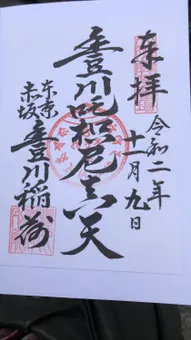 奉拝
令和二年
十一月九日
豊川吒枳尼真天
東京
赤坂
豊川稲荷